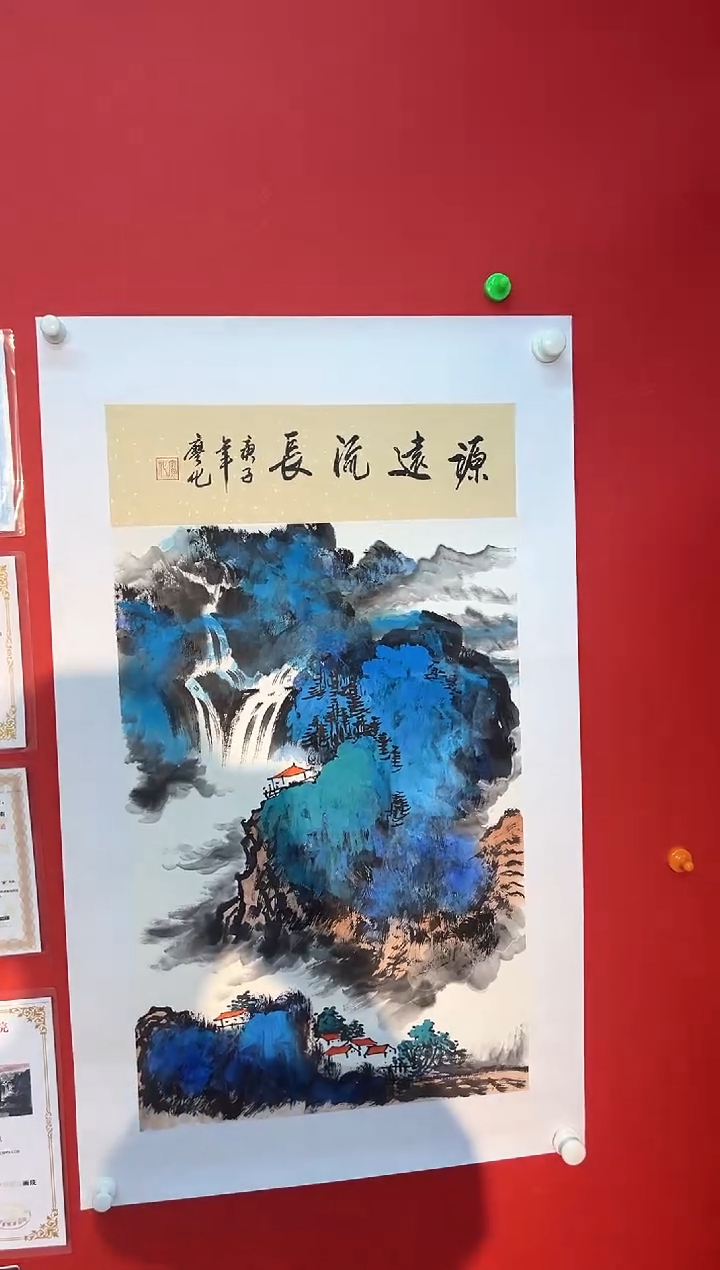 源遠流長
庚子
年
廖化